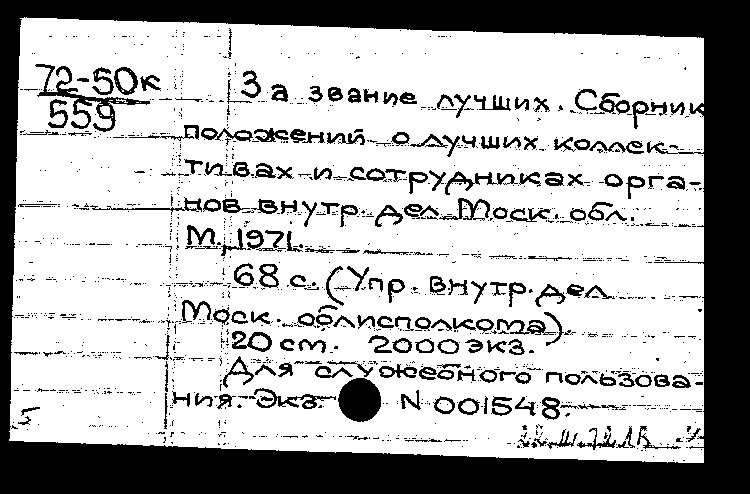 72-50к
559
За звание лучших. Сборник
положений о лучших коллек-
тивах и сотрудниках орга-
нов внутр. дел Моск. обл.
М., 1971.
68 с. (Упр. внутр. дел
Моск. облисполкома).
20 см. 2000 экз.
Для служебного пользова-
ния. Экз. N 001548.
5